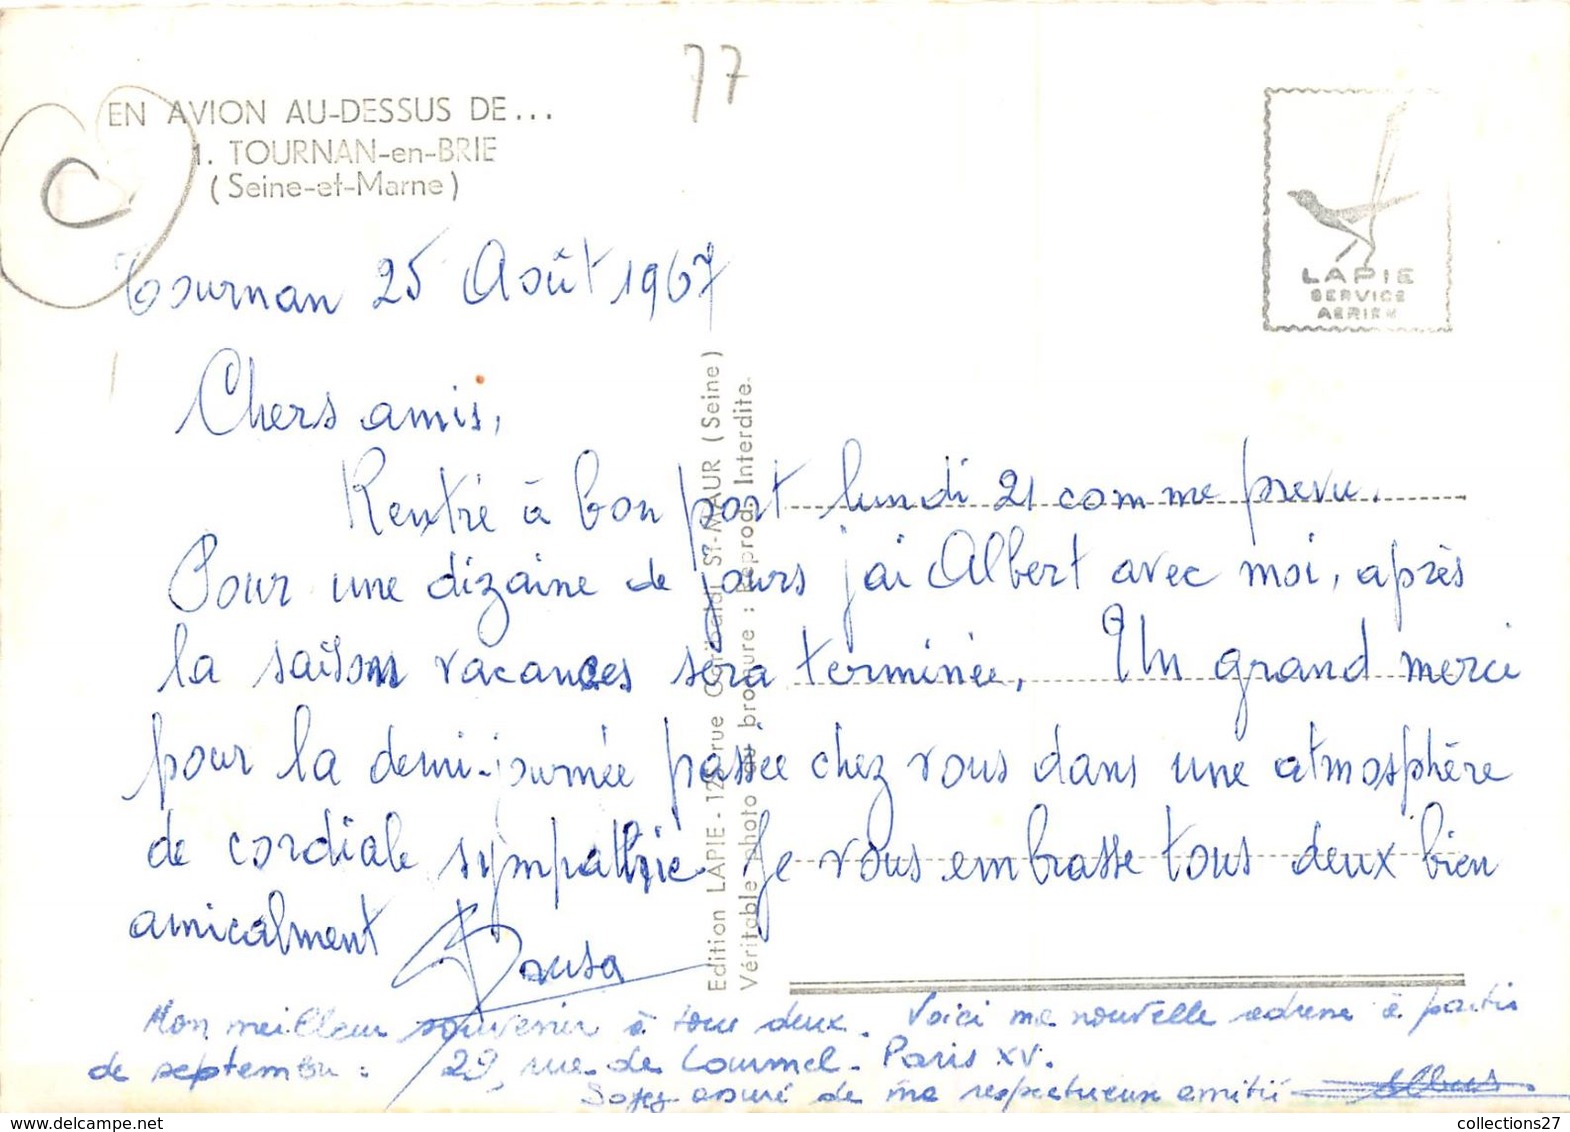 77
EN AVION AU-DESSUS DE...
1. TOURNAN-en-BRIE
(Seine-et-Marne)
LAPIE
SERVICE
AERIEN
Tournan 25 Août 1967
Chers amis,
Rentré à bon port lundi 21 comme prevu.
Pour une dizaine de jours j'ai Albert avec moi, après
la saison vacances sera terminée. Un grand merci
pour la demi-journée passée chez vous dans une atmosphère
de cordiale sympathie Je vous embrasse tous deux bien
amicalment
Edition LAPIE - rue ST-MAUR (Seine)
Véritable photo au bromure : Reprod. Interdite.
Mon meilleur souvenir à tous deux. Voici ma nouvelle adresse à partir
de septembre : 29, rue de Lourmel - Paris XV.
Soyez assuré de ma respectueuse amitié
collections27